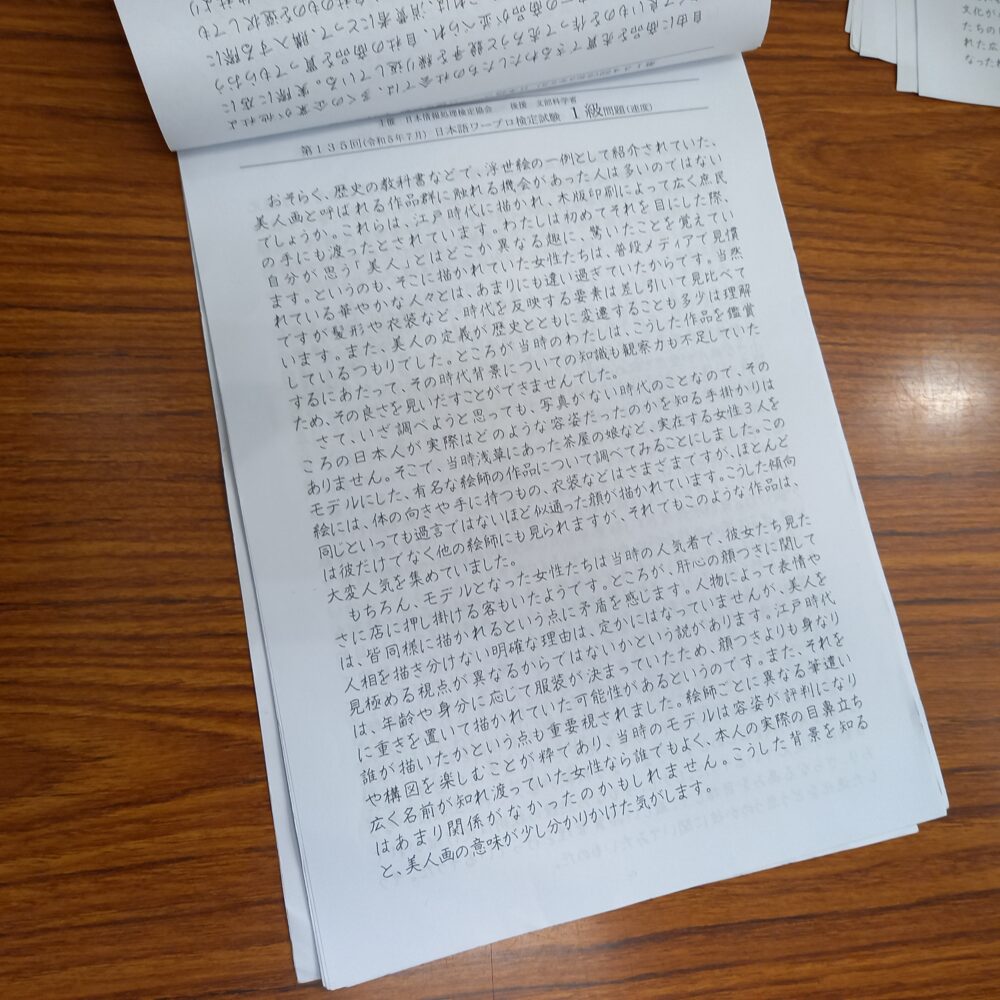 主催　日本情報処理検定協会　　後援　文部科学省
第１３５回(令和５年７月) 日本語ワープロ検定試験　１級問題(速度)
　おそらく、歴史の教科書などで、浮世絵の一例として紹介されていた、
美人画と呼ばれる作品群に触れる機会があった人は多いのではない
でしょうか。これらは、江戸時代に描かれ、木版印刷によって広く庶民
の手にも渡ったとされています。わたしは初めてそれを目にした際、
自分が思う「美人」とはどこか異なる趣に、驚いたことを覚えてい
ます。というのも、そこに描かれていた女性たちは、普段メディアで見慣
れている華やかな人々とは、あまりにも違い過ぎていたからです。当然
ですが髪形や衣装など、時代を反映する要素は差し引いて見比べて
います。また、美人の定義が歴史とともに変遷することも多少は理解
しているつもりでした。ところが当時のわたしは、こうした作品を鑑賞
するにあたって、その時代背景についての知識も観察力も不足していた
ため、その良さを見いだすことができませんでした。
　さて、いざ調べようと思っても、写真がない時代のことなので、その
ころの日本人が実際はどのような容姿だったのかを知る手掛かりは
ありません。そこで、当時浅草にあった茶屋の娘など、実在する女性３人を
モデルにした、有名な絵師の作品について調べてみることにしました。この
絵には、体の向きや手に持つもの、衣装などはさまざまですが、ほとんど
同じといっても過言ではないほど似通った顔が描かれています。こうした傾向
は彼だけでなく他の絵師にも見られますが、それでもこのような作品は、
大変人気を集めていました。
　もちろん、モデルとなった女性たちは当時の人気者で、彼女たち見た
さに店に押し掛ける客もいたようです。ところが、肝心の顔つきに関して
は、皆同様に描かれるという点に矛盾を感じます。人物によって表情や
人相を描き分けない明確な理由は、定かにはなっていませんが、美人を
見極める視点が異なるからではないかという説があります。江戸時代
は、年齢や身分に応じて服装が決まっていたため、顔つきよりも身なり
に重きを置いて描かれていた可能性があるというのです。また、それを
誰が描いたかという点も重要視されました。絵師ごとに異なる筆遣い
や構図を楽しむことが粋であり、当時のモデルは容姿が評判になり
広く名前が知れ渡っていた女性なら誰でもよく、本人の実際の目鼻立ち
はあまり関係がなかったのかもしれません。こうした背景を知る
と、美人画の意味が少し分かりかけた気がします。